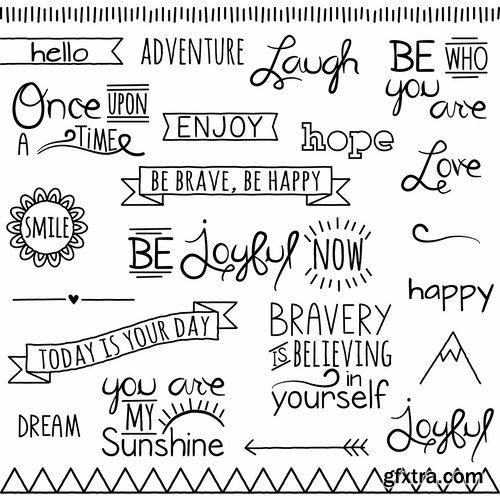 hello
ADVENTURE
Laugh
BE WHO
you are
Once UPON
A TIME
ENJOY
hope
Love
BE BRAVE, BE HAPPY
SMILE
BE Joyful NOW
happy
TODAY IS YOUR DAY
BRAVERY
IS BELIEVING
in
yourself
you are
MY
Sunshine
DREAM
Joyful
gfxtra.com